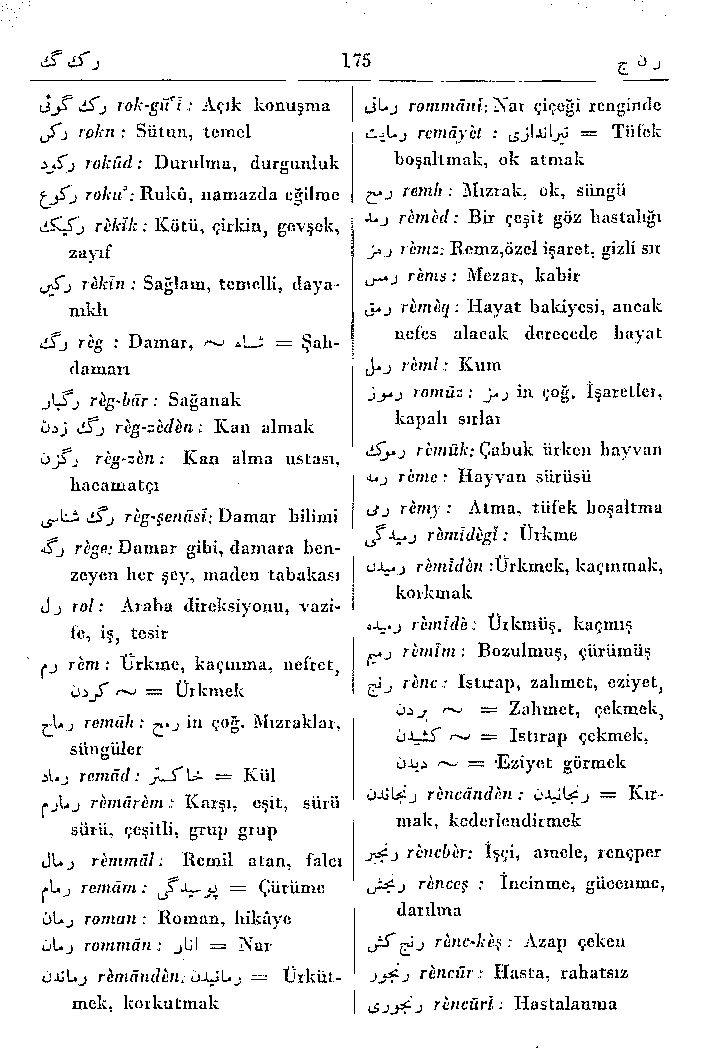 ر ک گ 175 ر ن ج
رک گوئی rok-gū'î : Açık konuşma
رکن rokn : Sütun, temel
رکود rokūd : Durulma, durgunluk
رکوع rokuʾ : Rukû, namazda eğilme
رکیک rèkîk : Kötü, çirkin, gevşek,
zayıf
رکین rèkîn : Sağlam, temelli, daya-
nıklı
رگ règ : Damar, ~ شاه = Şah-
damarı
رگبار règ-bār : Sağanak
رگ زدن règ-zèdèn : Kan almak
رگزن règ-zèn : Kan alma ustası,
hacamatçı
رگ شناسی règ-şenāsî : Damar bilimi
رگه rège : Damar gibi, damara ben-
zeyen her şey, maden tabakası
رل rol : Araba direksiyonu, vazi-
fe, iş, tesir
رم rèm : Ürkme, kaçınma, nefret,
~ کردن = Ürkmek
رماح remāh : رمح in çoğ. Mızraklar,
süngüler
رماد remād : خاکستر = Kül
رمارم rèmārèm : Karşı, eşit, sürü
sürü, çeşitli, grup grup
رمال rèmmāl : Remil atan, falcı
رمام remām : پوسیدگی = Çürüme
رمان roman : Roman, hikâye
رمان rommān : انار = Nar
رماندن rèmāndèn : رمانیدن = Ürküt-
mek, korkutmak
رمانی rommānî : Nar çiçeği renginde
رمایت remāyèt : تیراندازی = Tüfek
boşaltmak, ok atmak
رمح remh : Mızrak, ok, süngü
رمد rèmèd : Bir çeşit göz hastalığı
رمز rèmz : Remz, özel işaret, gizli sır
رمس rèms : Mezar, kabir
رمق rèmèq : Hayat bakiyesi, ancak
nefes alacak derecede hayat
رمل rèml : Kum
رموز romūz : رمز in çoğ. İşaretler,
kapalı sırlar
رموک rèmūk : Çabuk ürken hayvan
رمه rème : Hayvan sürüsü
رمی rèmy : Atma, tüfek boşaltma
رمیدگی rèmîdègî : Ürkme
رمیدن rèmîdèn : Ürkmek, kaçınmak,
korkmak
رمیده rèmîdè : Ürkmüş, kaçmış
رمیم rèmîm : Bozulmuş, çürümüş
رنج rènc : Istırap, zahmet, eziyet,
~ بردن = Zahmet, çekmek,
~ کشیدن = Istırap çekmek,
~ دیدن = Eziyet görmek
رنجاندن rèncāndèn : رنجانیدن = Kır-
mak, kederlendirmek
رنجبر rèncbèr : İşçi, amele, rençper
رنجش rènceş : İncinme, gücenme,
darılma
رنج کش rènc-kèş : Azap çeken
رنجور rèncūr : Hasta, rahatsız
رنجوری rèncūrî : Hastalanma